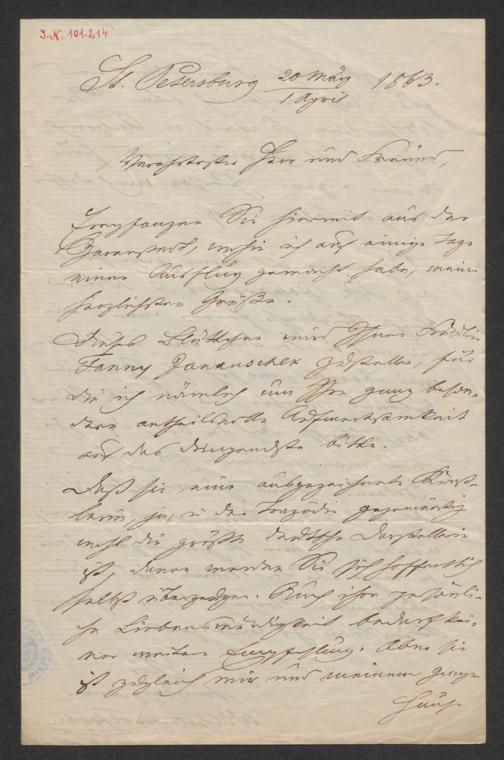 J.N. 101.214
St. Petersburg 20 März / 1 April 1863.
Verehrtester Herr und Freund,
Empfangen Sie hiermit aus der
Czarenstadt, wohin ich auf einige Tage
einen Ausflug gemacht habe, meine
herzlichsten Grüße.
Dieses Blättchen wird Ihnen Fräulein
Fanny Janauschek zustellen, für
die ich nämlich um Ihre ganz beson-
dere antheilvolle Aufmerksamkeit
auf das dringendste bitte.
Daß sie eine ausgezeichnete Künst-
lerin, ja, in der Tragödie gegenwärtig
wohl die größte deutsche Darstellerin
ist, davon werden Sie sich hoffentlich
selbst überzeugen. Auch ihre persönli-
che Liebenswürdigkeit bedarf kei-
ner weitern Empfehlung. Aber sie
ist zugleich mir und meinem ganzen
Hause